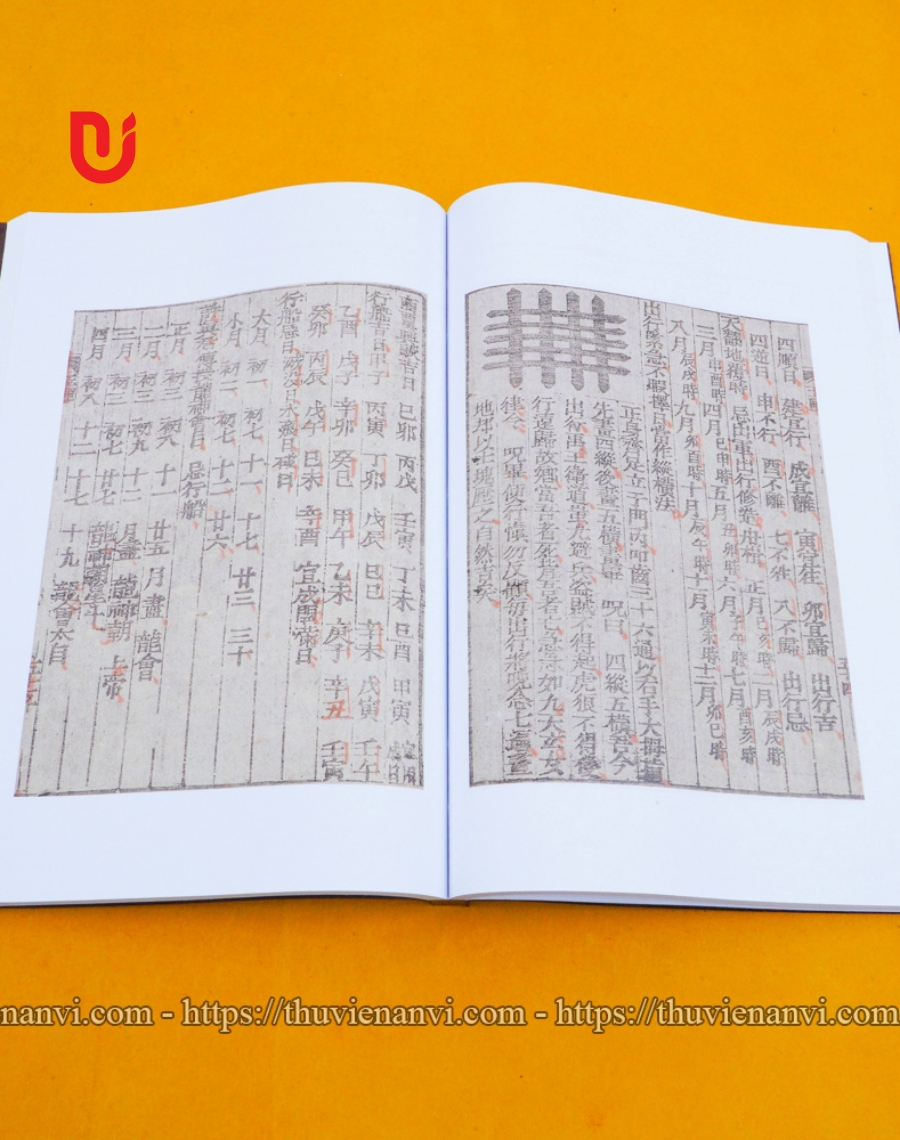 四順日 建宜行 成宜離 寅宜往 卯宜歸 出行吉
四逆日 申不行 酉不離 七不往 八不歸 出行忌
天翻地覆時 忌出軍出行修造舟楫 正月巳亥時二月辰戌時
三月申酉時四月巳申時五月丑卯時六月子午時七月酉亥時
八月辰戌時九月卯酉時十月辰午時十一月寅未時十二月卯巳時
出行緊急不暇擇日當作縱橫法
正身齊足立于門內叩齒三十六通以右手大拇指
先畫四縱後畫五橫畫畢 咒曰 四縱五橫吾今
出行禹王衛道蚩尤避兵盜賊不得起虎狼不得侵
行遠歸故鄉當吾者死背吾者亡急急如九天玄女
律令 咒畢便行慎勿反顧每出行 晚念七遍
地却以土塊壓之自然吉矣
吉日 巳卯 丙戌 壬寅 丁未 巳酉 甲寅
行船吉日甲子 丙寅 丁卯 戊辰 巳巳 辛未 戊寅 壬午
乙酉 戊子 辛卯 癸巳 甲午 乙未 庚子 辛丑 壬寅
癸卯 丙辰 戊午 巳未 辛酉 宜成開 日
行船忌日 日水痕日破日
大月 初一 初七 十一 十七 廿三 三十
小月 初一 初七 十二 廿六
龍神會日 忌行船
正月 初三 初八 十一 廿五 月盡 龍會
二月 初三 初九 十二 月盡 龍神朝 上帝
三月 初三 初七 廿七 龍神
四月 初八 十二 十七 十九 龍會太白
nanvi.com - https://thuvienanvi.com - https://thuvienanvi.com